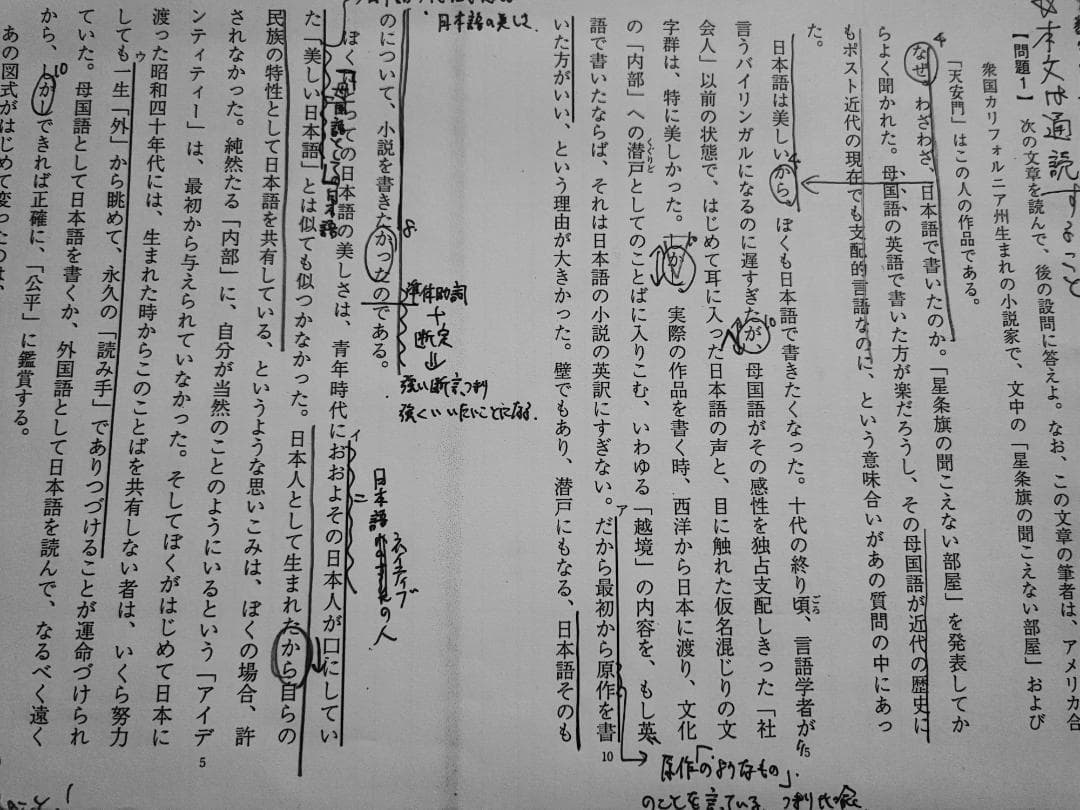 ☆本文は通読すること
【問題1】 次の文章を読んで、後の設問に答えよ。なお、この文章の筆者は、アメリカ合
衆国カリフォルニア州生まれの小説家で、文中の「星条旗の聞こえない部屋」および
「天安門」はこの人の作品である。
なぜ、わざわざ、日本語で書いたのか。「星条旗の聞こえない部屋」を発表してか
らよく聞かれた。母国語の英語で書いた方が楽だろうし、その母国語が近代の歴史に
もポスト近代の現在でも支配的言語なのに、という意味合いがあの質問の中にあっ
た。
日本語は美しいから、ぼくも日本語で書きたくなった。十代の終り頃、言語学者が
ごろ
言うバイリンガルになるのに遅すぎたが、母国語がその感性を独占支配しきった「社
会人」以前の状態で、はじめて耳に入った日本語の声と、目に触れた仮名混じりの文
字群は、特に美しかった。しかし、実際の作品を書く時、西洋から日本に渡り、文化
の「内部」への潜戸としてのことばに入りこむ、いわゆる「越境」の内容を、もし英
くぐりど
語で書いたならば、それは日本語の小説の英訳にすぎない。だから最初から原作を書
ア
いた方がいい、という理由が大きかった。壁でもあり、潜戸にもなる、日本語そのも
10
原作「のようなもの」
のことを言っている
のについて、小説を書きたかったのである。
準体助詞
+
断定
⇓
強い断言、つまり
強くいいたいことになる。
ぼくにとっての日本語の美しさは、青年時代におおよその日本人が口にしてい
イ
日本語
ネイティブ
の人
た「美しい日本語」とは似ても似つかなかった。日本人として生まれたから自らの
民族の特性として日本語を共有している、というような思いこみは、ぼくの場合、許
されなかった。純然たる「内部」に、自分が当然のことのようにいるという「アイデ
ンティティー」は、最初から与えられていなかった。そしてぼくがはじめて日本に
5
渡った昭和四十年代には、生まれた時からこのことばを共有しない者は、いくら努力
しても一生「外」から眺めて、永久の「読み手」でありつづけることが運命づけられ
ウ
ていた。母国語として日本語を書くか、外国語として日本語を読んで、なるべく遠く
から、しかしできれば正確に、「公平」に鑑賞する。
あの図式がはじめて変ったのは、